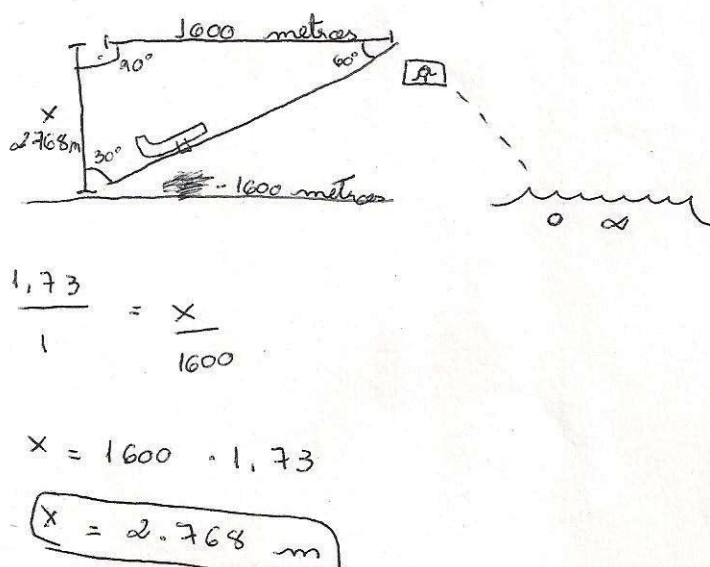 1600 metros
90°
60°
x
2768m
30°
- 1600 metros
1,73
1
= x
1600
x = 1600 . 1,73
x = 2.768 m